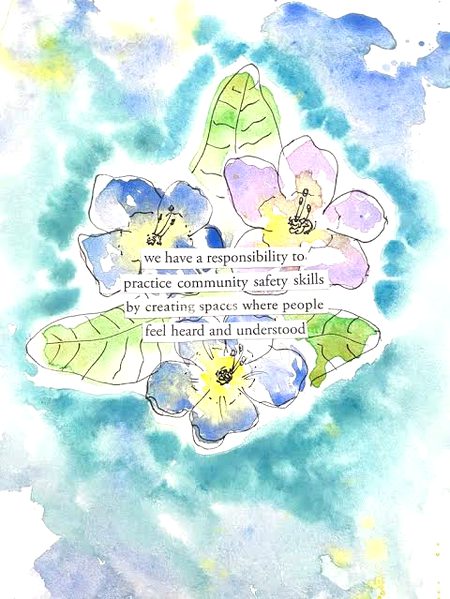 we have a responsibility to
practice community safety skills
by creating spaces where people
feel heard and understood